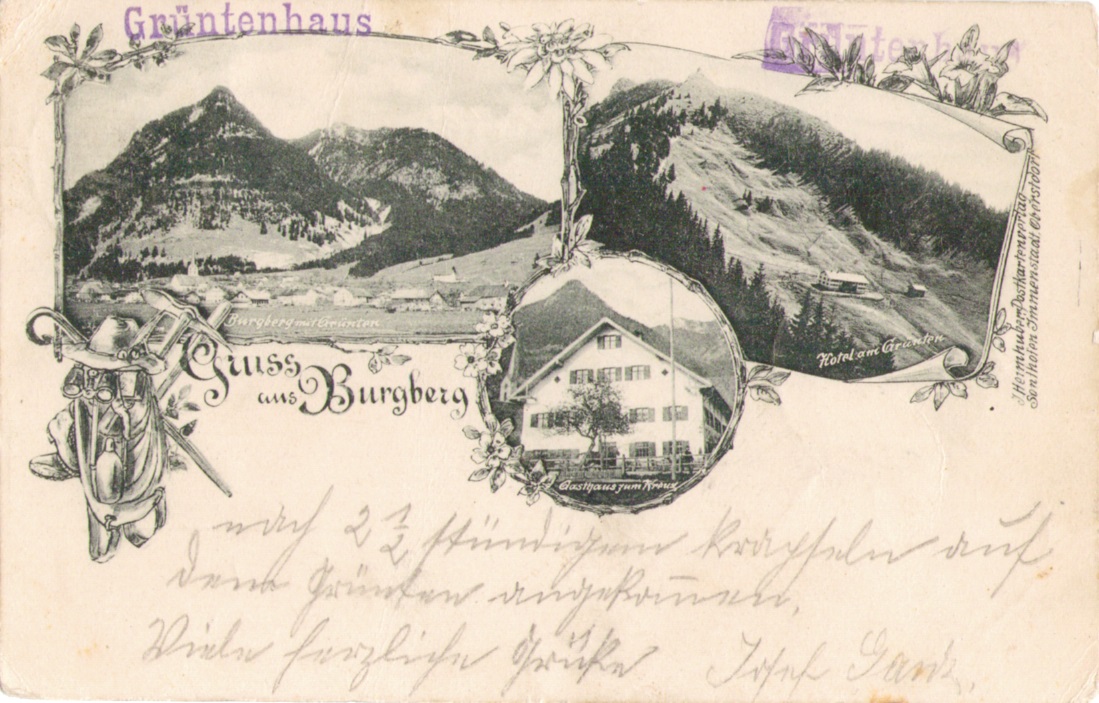 Grüntenhaus
Grüntenhaus
Burgberg mit Grünten
Hotel am Grünten
J. Heimhuber, Postkartenverlag
Sonthofen Immenstadt Oberstdorf
Gruss
aus Burgberg
Gasthaus zum Kreuz
nach 2 1/2 stündigem kraxseln auf
dem Grünten angekom̅en.
Viele herzliche Grüße Josef